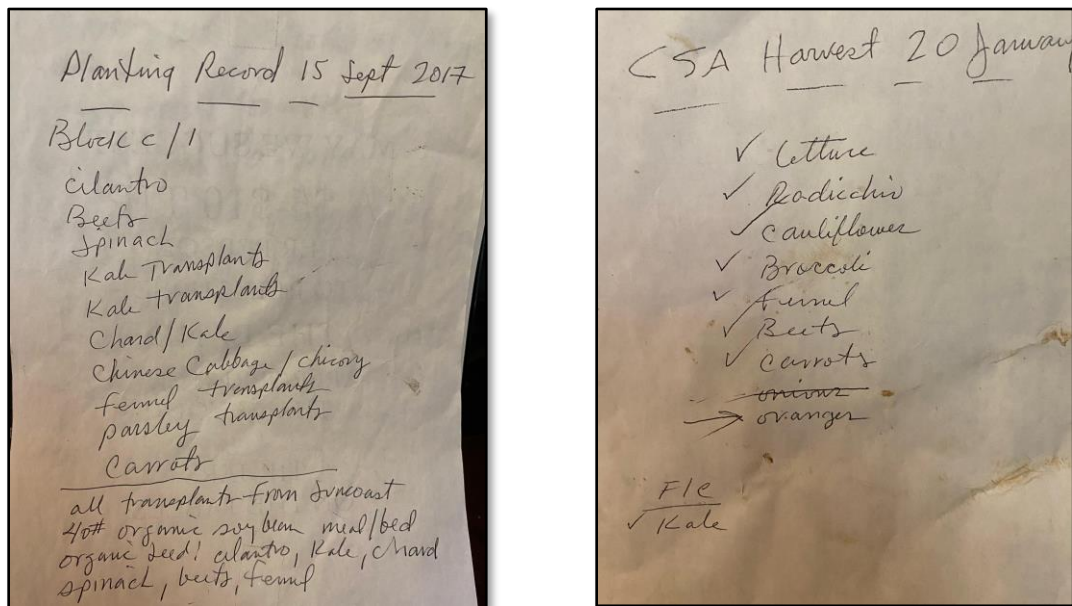 Planting Record 15 Sept 2017
Block c/1
cilantro
Beets
Spinach
Kale Transplants
Kale transplants
Chard/Kale
Chinese Cabbage/chicory
fennel transplants
parsley transplants
Carrots
all transplants from Suncoast
40# organic soybean meal/bed
organic seed! cilantro, Kale, chard
spinach, beets, fennel
CSA Harvest 20 January
✓ lettuce
✓ Radicchio
✓ cauliflower
✓ Broccoli
✓ Fennel
✓ Beets
✓ Carrots
onions
→ oranges
F/C
✓ Kale